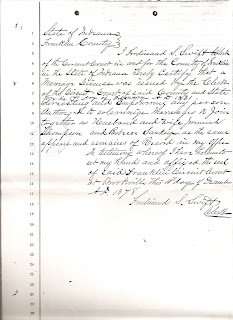 State of Indiana
Franklin County
I Ferdinand S. Swift Clerk
of the Circuit Court in and for the County of Franklin
in the State of Indiana hereby Certify that a
Marriage License was issued by the Clerk
of the Circuit Court of said County and State
directing and Empowering any person
Authorized to solemnize Marriages to join
together as Husband and wife
Thompson and as the same
appears and remains of Record in my office
In testimony whereof I have hereunto
set my Hand and affixed the seal
of said Franklin Circuit Court
at Brookville this day of December
A.D. 1878
Ferdinand S. Swift
Clerk